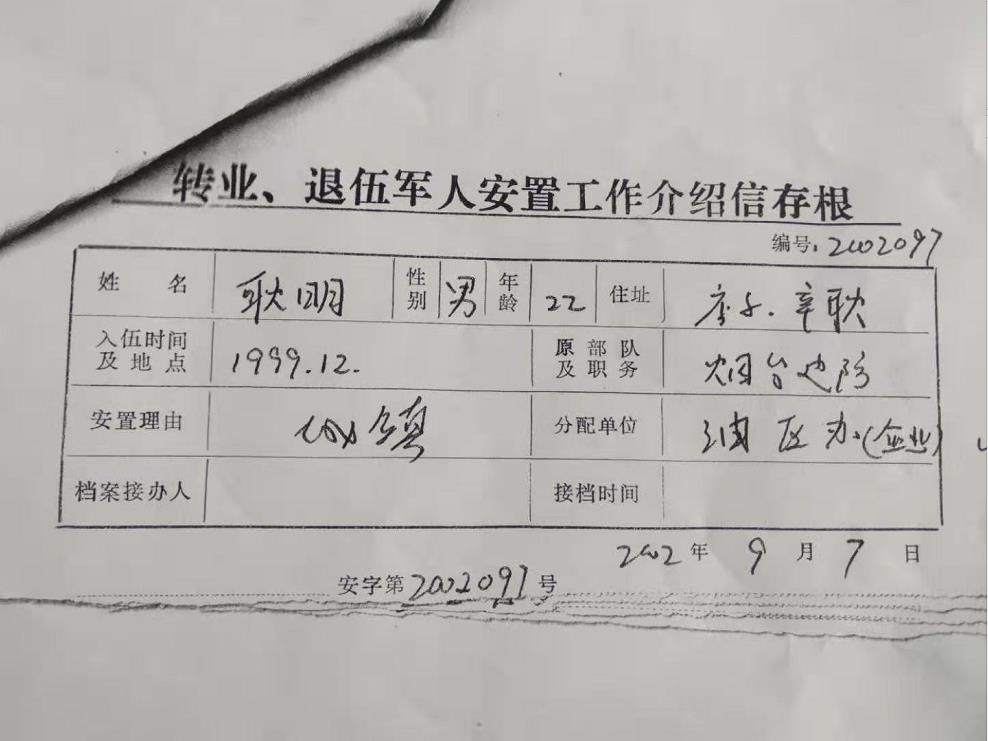 转业、退伍军人安置工作介绍信存根
编号.2002097
姓名 耿明 性别 男 年龄 22 住址 李子.辛耿
入伍时间及地点 1999.12. 原部队及职务 烟台边防
安置理由 城镇 分配单位 油区办(企业)
档案接办人 接档时间
2002年9月7日
安字第2002097号